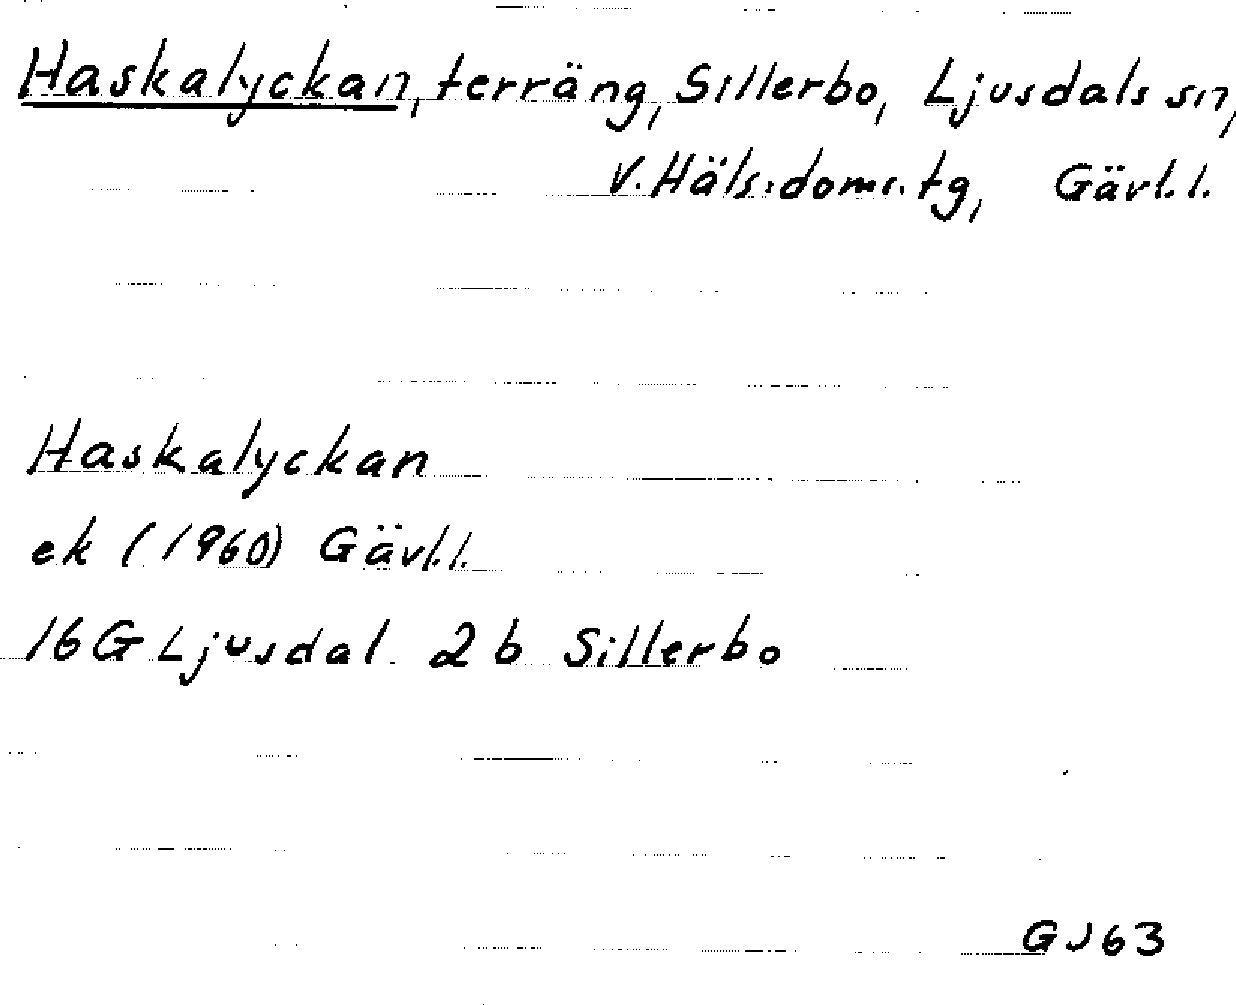 Haskalyckan, terräng, Sillerbo, Ljusdals sn,
V. Häls:doms.tg, Gävl.l.
Haskalyckan
ek (1960) Gävl.l.
16G Ljusdal 2 b Sillerbo
GJ63